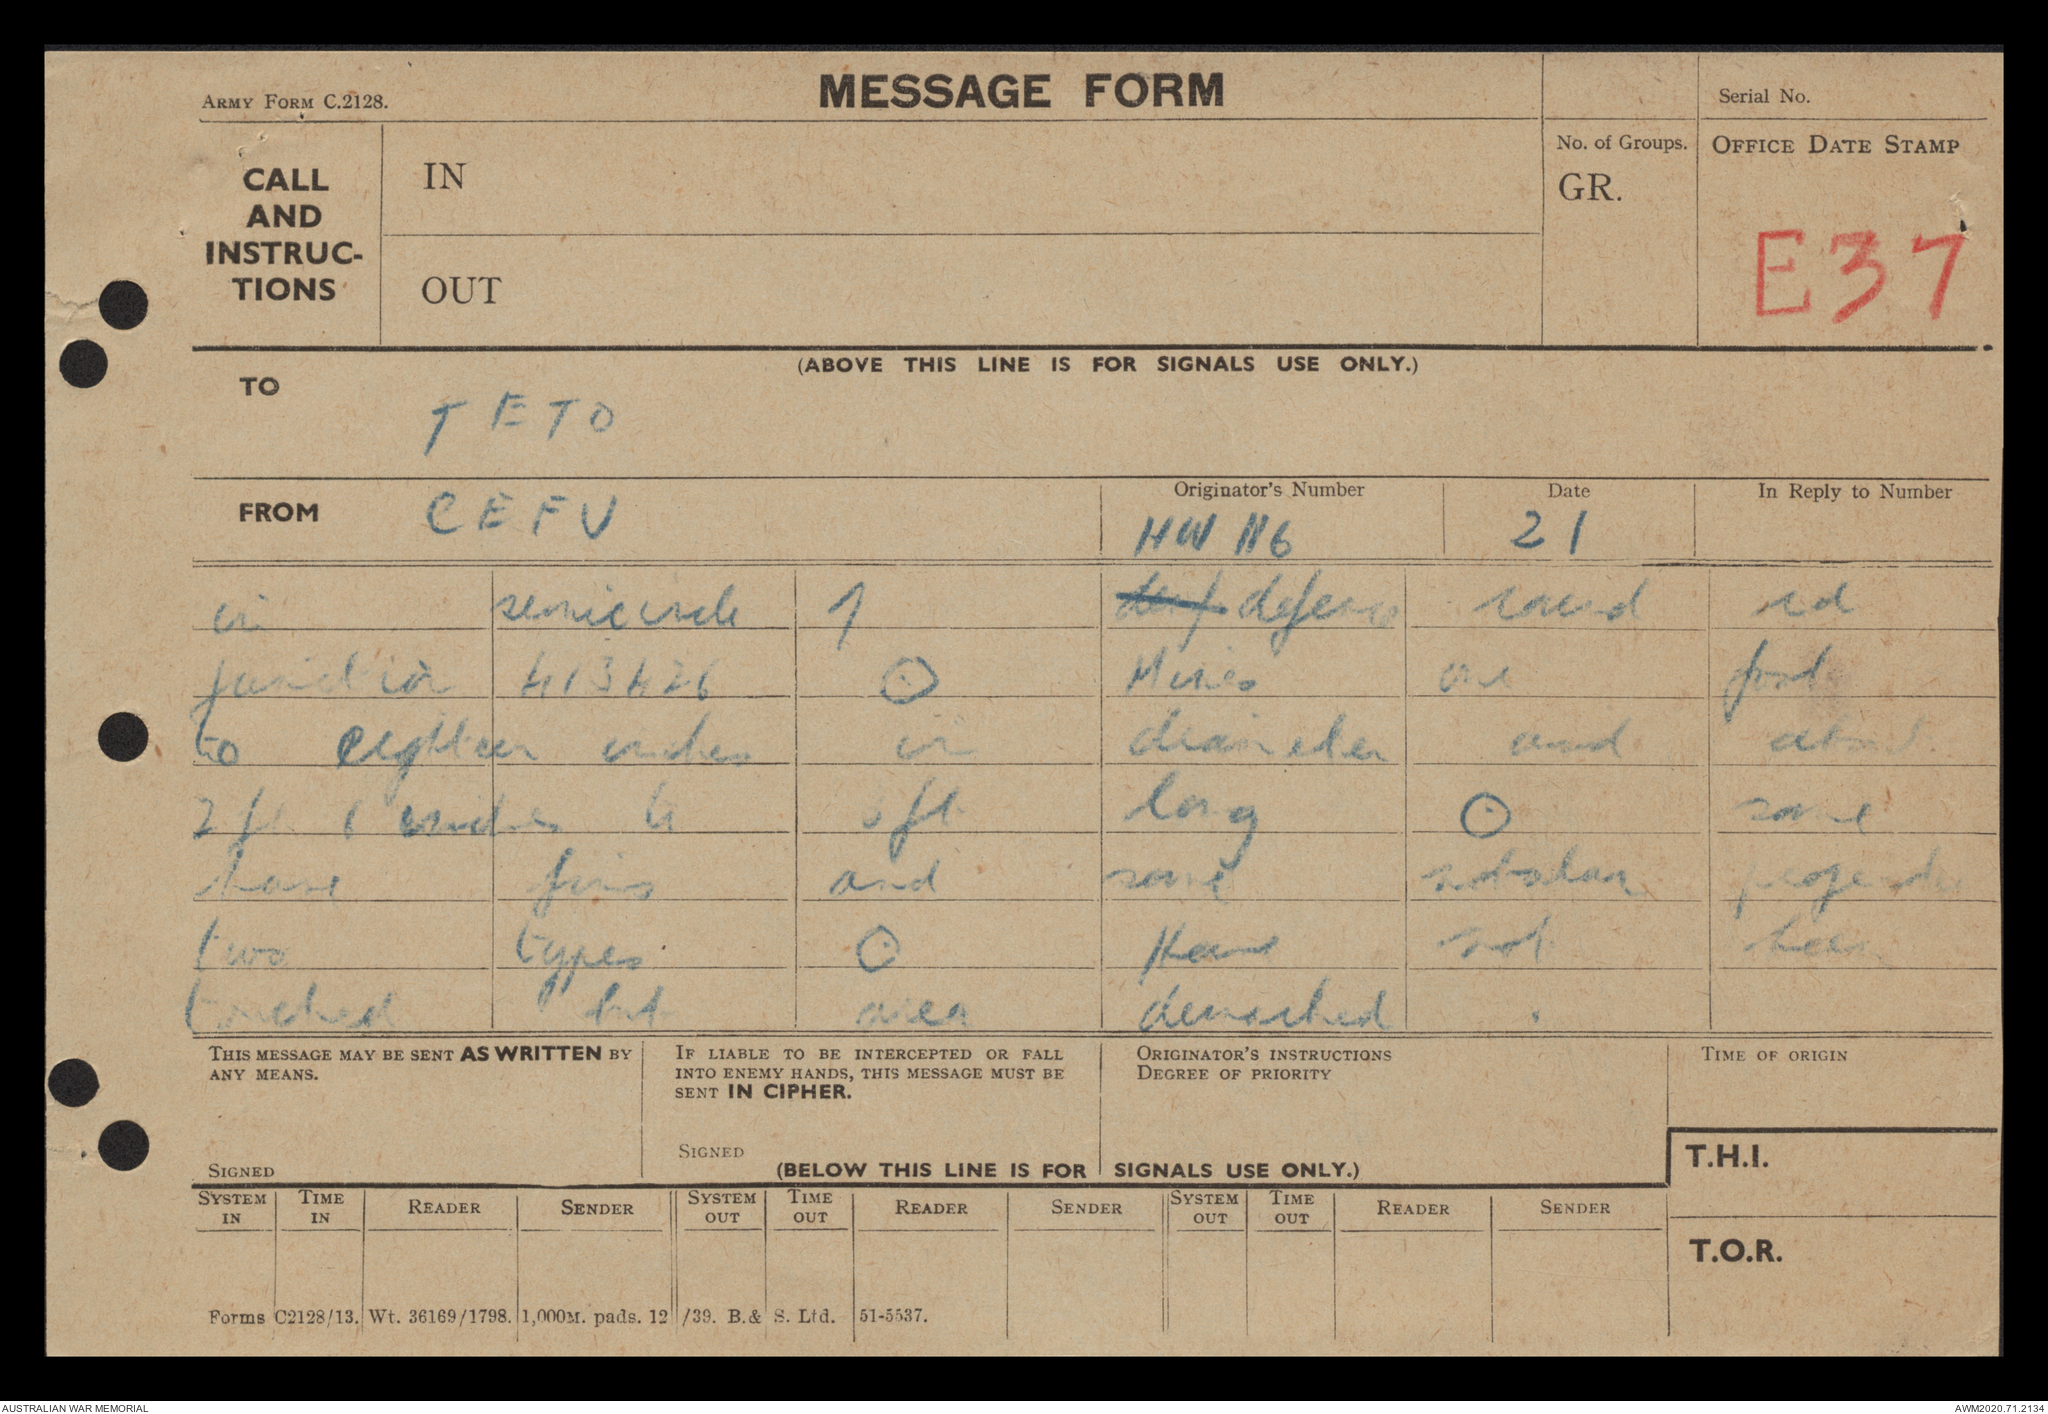 ARMY FORM C.2128.
MESSAGE FORM
Serial No.
CALL AND INSTRUC-TIONS
IN
OUT
No. of Groups.
GR.
OFFICE DATE STAMP
E37
(ABOVE THIS LINE IS FOR SIGNALS USE ONLY.)
TO
TETO
FROM
CEFU
Originator's Number
HW 116
Date
21
In Reply to Number
in semicircle defence round rd
junction 413426 ⊙ Mines one foot
to eighteen inches in diameter and about
2 ft 6 inches to ft long ⊙ some
have fins and some not
two types ⊙ Have not been
touched but area demarked .
THIS MESSAGE MAY BE SENT AS WRITTEN BY
ANY MEANS.
SIGNED
IF LIABLE TO BE INTERCEPTED OR FALL
INTO ENEMY HANDS, THIS MESSAGE MUST BE
SENT IN CIPHER.
SIGNED
ORIGINATOR'S INSTRUCTIONS
DEGREE OF PRIORITY
TIME OF ORIGIN
(BELOW THIS LINE IS FOR SIGNALS USE ONLY.)
T.H.I.
T.O.R.
SYSTEM IN TIME IN READER SENDER SYSTEM OUT TIME OUT READER SENDER SYSTEM OUT TIME OUT READER SENDER
Forms C2128/13. Wt. 36169/1798. 1,000M. pads. 12/39. B.& S. Ltd. 51-5537.
AUSTRALIAN WAR MEMORIAL
AWM2020.71.2134